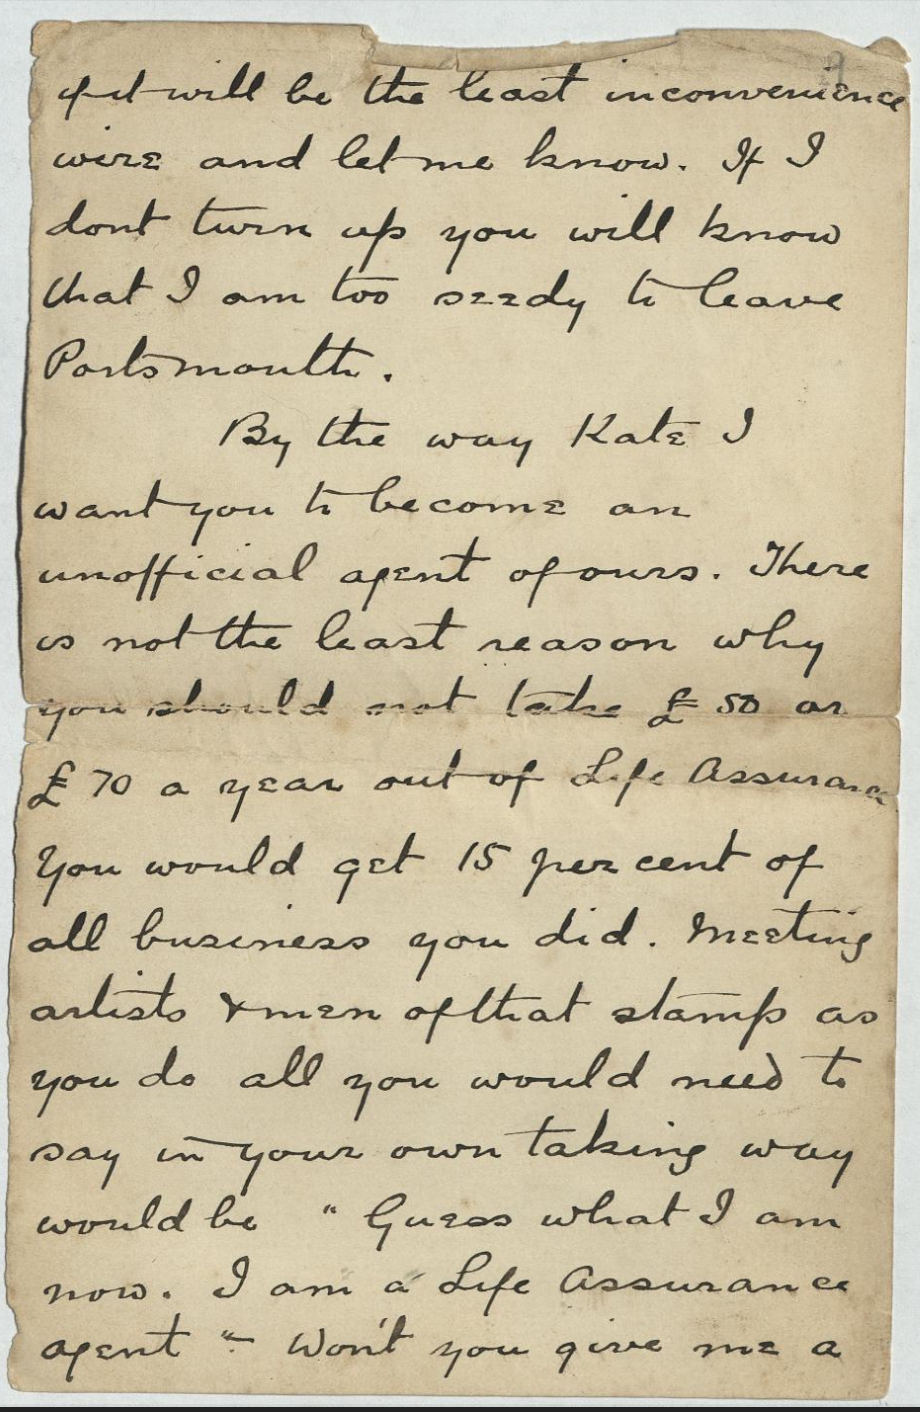 if it will be the least inconvenience
wire and let me know. If I
dont turn up you will know
that I am too seedy to leave
Portsmouth.
By the way Kate I
want you to become an
unofficial agent of ours. There
is not the least reason why
you should not take £50 or
£70 a year out of Life Assurance
You would get 15 per cent of
all business you did. Meeting
artists & men of that stamp as
you do all you would need to
say in your own taking way
would be "Guess what I am
now. I am a Life Assurance
agent" - Won't you give me a